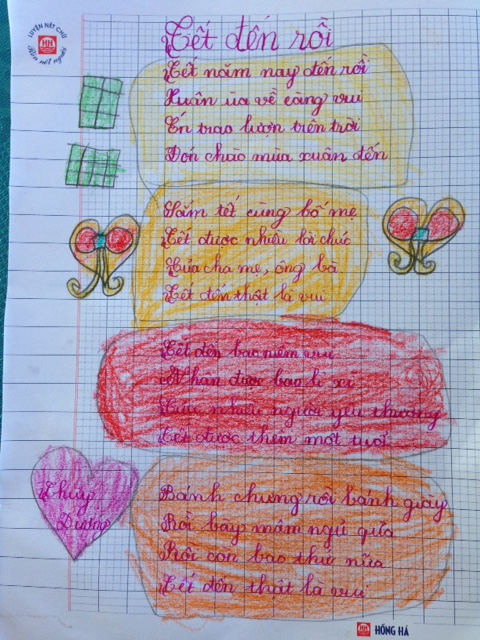 LUYỆN NẾT CHỮ
HH
Rèn nết người
Tết đến rồi
Tết năm nay đến rồi
Xuân ùa về càng vui
Én trao lượn trên trời
Đón chào mùa xuân đến
Sắm tết cùng bố mẹ
Tết được nhiều lời chúc
Của cha mẹ, ông bà
Tết đến thật là vui
Tết đến bao niềm vui
Nhận được bao lì xì
Của nhiều người yêu thương
Tết được thêm một tuổi
Thuỳ
Dương
Bánh chưng rồi bánh giầy
Rồi bày mâm ngũ quả
Rồi còn bao thứ nữa
Tết đến thật là vui
HH HỒNG HÀ